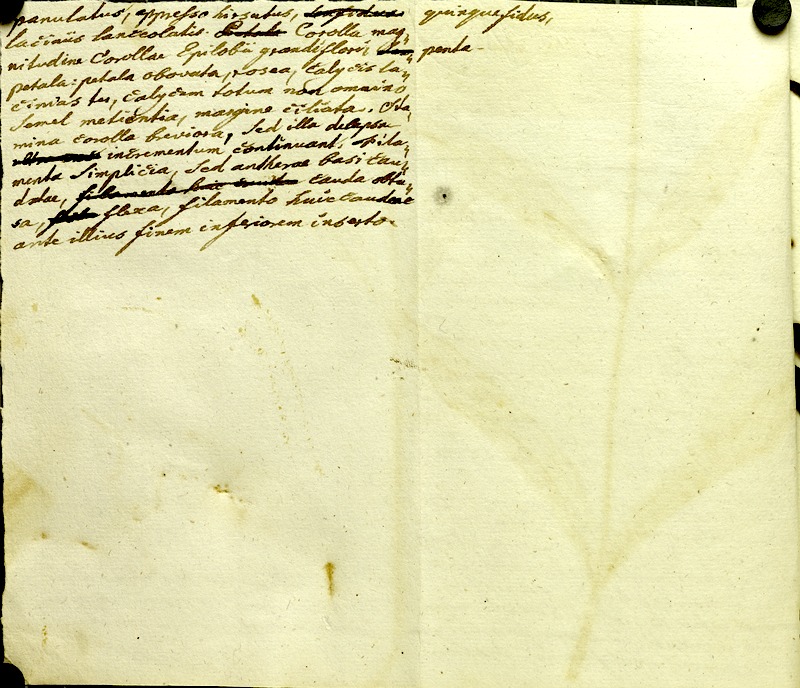 panulatus, appresso hirsutus, quinquefidus,
laciniis lanceolatis. Corolla mag,,
nitudine Corollae Epilobii grandiflori, penta-
petala: petala obovata, rosea, Calycis la,,
cinias ter, calycem totum non omnino
semel metientia, margine ciliata. Sta,,
mina corolla breviora, sed illa delapsa
incrementum continuant, Fila,,
menta simplicia, sed antherae basi cau,,
datae, cauda obtu,,
sa, flexa, filamento huic caudae
ante illius finem inferiorem inserto.